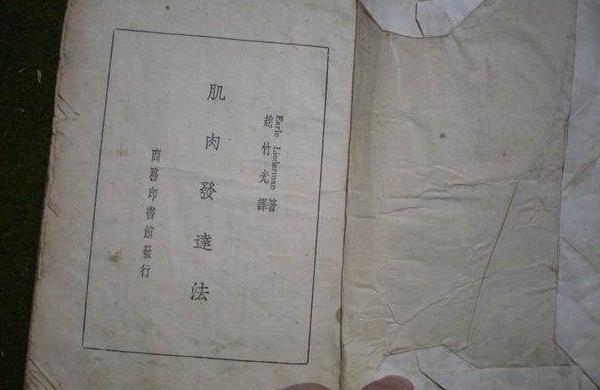 Earle Liederman 著
趙竹光譯
肌肉發達法
商務印書館發行